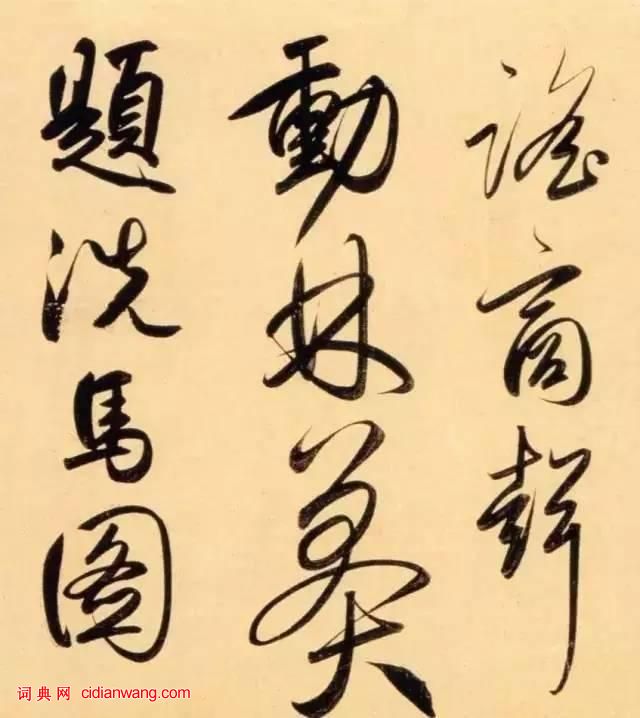 謠商聲
動林
題洗馬圖
词典网 cidianwang.com